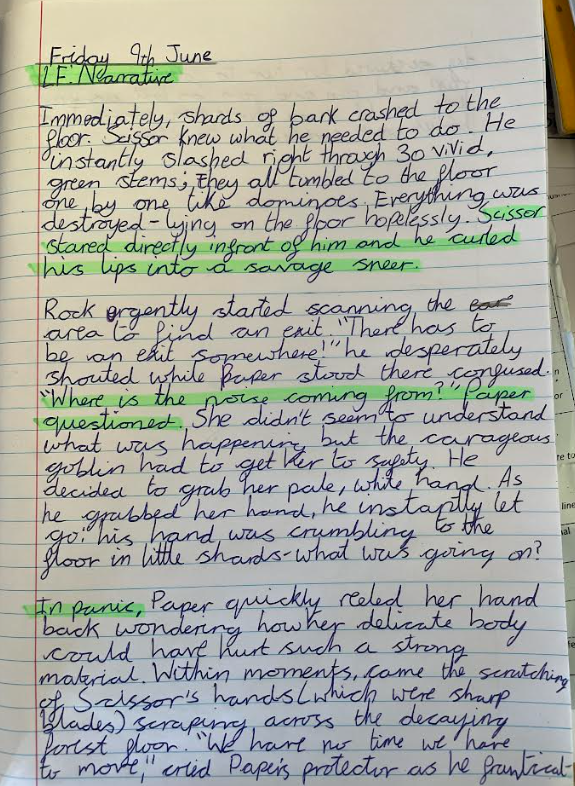 Friday 9th June
LF: Narrative
Immediately, shards of bark crashed to the
floor. Scissor knew what he needed to do. He
instantly slashed right through 30 vivid,
green stems; they all tumbled to the floor
one by one like dominoes. Everything was
destroyed - lying on the floor hopelessly. Scissor
stared directly infront of him and he curled
his lips into a savage sneer.
Rock urgently started scanning the
area to find an exit. "There has to
be an exit somewhere!" he desperately
shouted while Paper stood there confused.
"Where is the noise coming from?" Paper
questioned. She didn't seem to understand
what was happening but the carageous
goblin had to get her to safety. He
decided to grab her pale, white hand. As
he grabbed her hand, he instantly let
go: his hand was crumbling to the
floor in little shards - what was going on?
In panic, Paper quickly reeled her hand
back wondering how her delicate body
could have hurt such a strong
material. Within moments, came the scratching
of Scissor's hands (which were sharp
blades) scraping across the decaying
forest floor. "We have no time we have
to move," cried Paper's protector as he frantical-